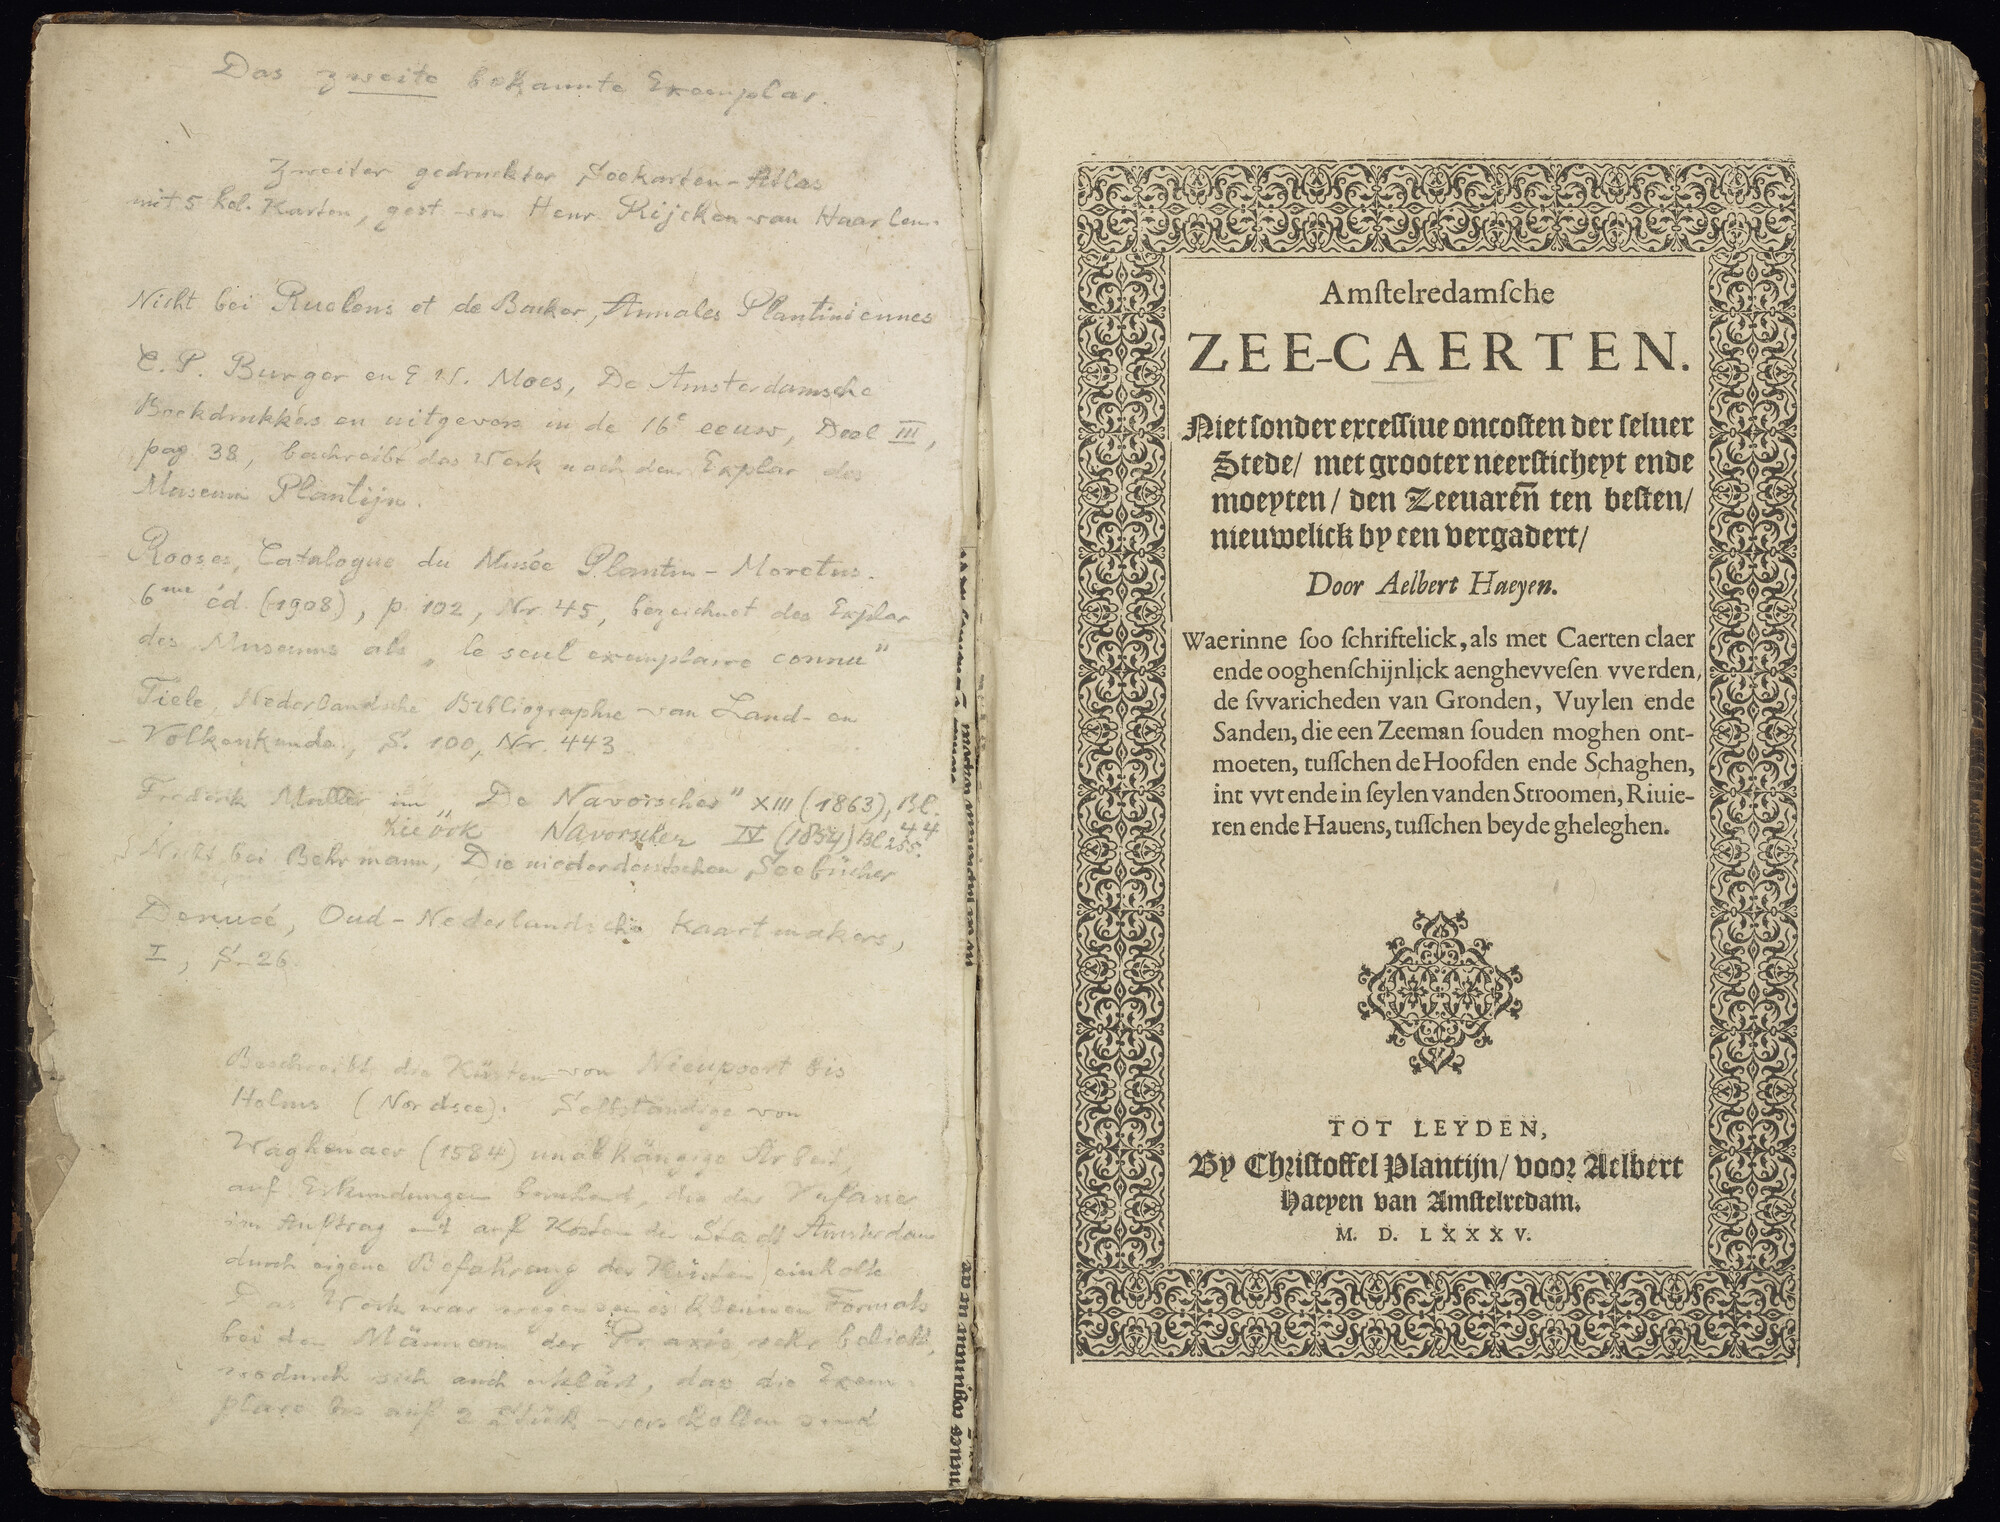 Das zweite bekannte Exemplar.
Zweiter gedruckter Seekarten-Atlas
mit 5 kol. Karten, gest von Henr. Rijcken van Haarlem
Nicht bei Ruelens et de Backer, Annales Plantiniennes
C. P. Burger en E W. Moes, De Amsterdamsche
Boekdrukkers en uitgevers in de 16e eeuw, Deel III,
pag 38, beschreibt das Werk nach dem Explar des
Museum Plantijn.
Rooses, Catalogue du Musée Plantin-Moretus.
6me éd. (1908), p. 102, Nr. 45, bezeichnet das Explar
des Museums als „le seul exemplaire connu"
Tiele, Nederlandsche Bibliographie van Land- en
Volkenkunde, S. 100, Nr. 443
Frederik Muller im „De Navorscher" XIII (1863), Bl. 44
Navorscher IV (1854) Bl
Nicht bei Behrmann, Die niederdeutschen Seebücher
Denucé, Oud-Nederlandsche Kaartmakers,
I, S. 26.
Beschreibt die Küsten von Nieupoort bis
(Nordsee). Selbständige von
Waghenaer (1584) unabhängige Arbeit,
auf Erkundungen beruhend, die der Verfasser
im Auftrag und auf Kosten der Stadt Amsterdam
durch eigene Befahrung der Küsten einholte
Das Werk war wegen seines kleinen Formats
bei den Männern der Praxis sehr beliebt,
wodurch sich auch erklärt, das die Exem-
plare bis auf 2 Stück verschollen sind
Amſtelredamſche
ZEE-CAERTEN.
Niet ſonder exceſſiue oncoſten der ſeluer
Stede/ met grooter neerſticheyt ende
moeyten/ den Zeeuarēn ten beſten/
nieuwelick by een vergadert/
Door Aelbert Haeyen.
Waerinne ſoo ſchriftelick, als met Caerten claer
ende ooghenſchijnlick aenghevveſen vverden,
de ſvvaricheden van Gronden, Vuylen ende
Sanden, die een Zeeman ſouden moghen ont-
moeten, tuſſchen de Hoofden ende Schaghen,
int vvt ende in ſeylen vanden Stroomen, Riuie-
ren ende Hauens, tuſſchen beyde gheleghen.
TOT LEYDEN,
By Chriſtoffel Plantijn/ voor Aelbert
Haeyen van Amſtelredam.
M. D. LXXXV.